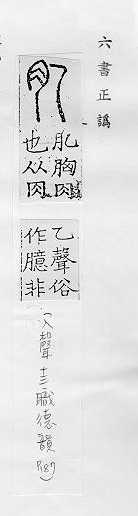 六書正譌
肊胸肉
也从肉
乙聲俗
作臆非
(入聲十三職德韻P.87)